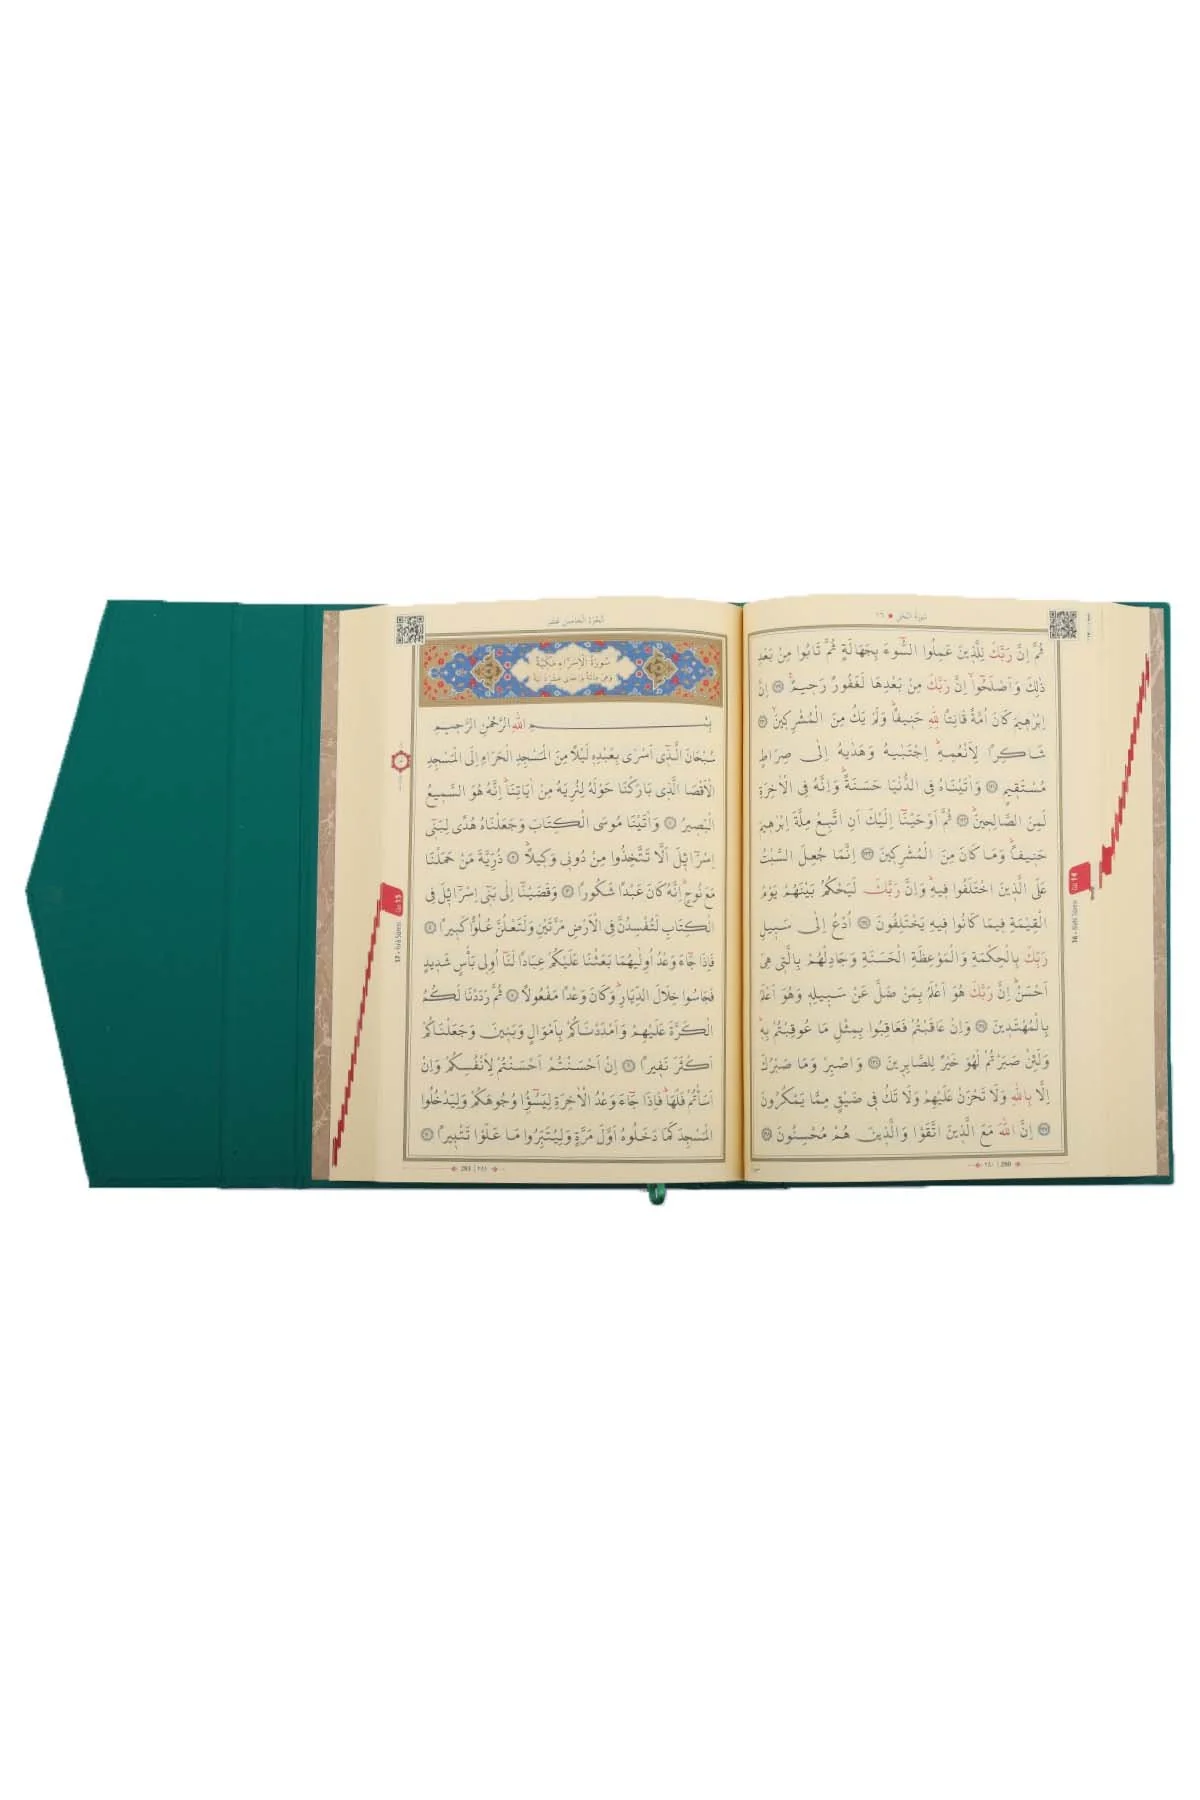 سُورَةُ النَّحْلِ ★ ١٦
ثُمَّ اِنَّ رَبَّكَ لِلَّذٖينَ عَمِلُوا السُّٓوءَ بِجَهَالَةٍ ثُمَّ تَابُوا مِنْ بَعْدِ
ذٰلِكَ وَاَصْلَحُٓوا اِنَّ رَبَّكَ مِنْ بَعْدِهَا لَغَفُورٌ رَحٖيمٌ ﴿١١٩﴾ اِنَّ
اِبْرٰهٖيمَ كَانَ اُمَّةً قَانِتاً لِلّٰهِ حَنٖيفاً وَلَمْ يَكُ مِنَ الْمُشْرِكٖينَ ﴿١٢٠﴾
شَاكِراً لِاَنْعُمِهٖ اِجْتَبٰيهُ وَهَدٰيهُ اِلٰى صِرَاطٍ
مُسْتَقٖيمٍ ﴿١٢١﴾ وَاٰتَيْنَاهُ فِي الدُّنْيَا حَسَنَةً وَاِنَّهُ فِي الْاٰخِرَةِ
لَمِنَ الصَّالِحٖينَ ﴿١٢٢﴾ ثُمَّ اَوْحَيْنَٓا اِلَيْكَ اَنِ اتَّبِعْ مِلَّةَ اِبْرٰهٖيمَ
حَنٖيفاً وَمَا كَانَ مِنَ الْمُشْرِكٖينَ ﴿١٢٣﴾ اِنَّمَا جُعِلَ السَّبْتُ
عَلَى الَّذٖينَ اخْتَلَفُوا فٖيهِ وَاِنَّ رَبَّكَ لَيَحْكُمُ بَيْنَهُمْ يَوْمَ
الْقِيٰمَةِ فٖيمَا كَانُوا فٖيهِ يَخْتَلِفُونَ ﴿١٢٤﴾ اُدْعُ اِلٰى سَبٖيلِ
رَبِّكَ بِالْحِكْمَةِ وَالْمَوْعِظَةِ الْحَسَنَةِ وَجَادِلْهُمْ بِالَّتٖي هِيَ
اَحْسَنُ اِنَّ رَبَّكَ هُوَ اَعْلَمُ بِمَنْ ضَلَّ عَنْ سَبٖيلِهٖ وَهُوَ اَعْلَمُ
بِالْمُهْتَدٖينَ ﴿١٢٥﴾ وَاِنْ عَاقَبْتُمْ فَعَاقِبُوا بِمِثْلِ مَا عُوقِبْتُمْ بِهٖ
وَلَئِنْ صَبَرْتُمْ لَهُوَ خَيْرٌ لِلصَّابِرٖينَ ﴿١٢٦﴾ وَاصْبِرْ وَمَا صَبْرُكَ
اِلَّا بِاللّٰهِ وَلَا تَحْزَنْ عَلَيْهِمْ وَلَا تَكُ فٖي ضَيْقٍ مِمَّا يَمْكُرُونَ
﴿١٢٧﴾ اِنَّ اللّٰهَ مَعَ الَّذٖينَ اتَّقَوْا وَالَّذٖينَ هُمْ مُحْسِنُونَ ﴿١٢٨﴾
280 | ٢٨٠
14 Cüz
16 - Nahl Sûresi
اَلْجُزْءُ الْخَامِسَ عَشَرَ
سُورَةُ الْاِسْرَاءِ مَكِّيَّةٌ
وَهِيَ مِائَةٌ وَاِحْدٰى عَشْرَةَ اٰيَةً
بِسْــــــمِ اللّٰهِ الرَّحْمٰنِ الرَّحٖيمِ
سُبْحَانَ الَّذٖٓي اَسْرٰى بِعَبْدِهٖ لَيْلاً مِنَ الْمَسْجِدِ الْحَرَامِ اِلَى الْمَسْجِدِ
الْاَقْصَا الَّذٖي بَارَكْنَا حَوْلَهُ لِنُرِيَهُ مِنْ اٰيَاتِنَا اِنَّهُ هُوَ السَّمٖيعُ
الْبَصٖيرُ ﴿١﴾ وَاٰتَيْنَا مُوسَى الْكِتَابَ وَجَعَلْنَاهُ هُدًى لِبَنٖٓي
اِسْرَٓائٖلَ اَلَّا تَتَّخِذُوا مِنْ دُونٖي وَكٖيلاً ﴿٢﴾ ذُرِّيَّةَ مَنْ حَمَلْنَا
مَعَ نُوحٍ اِنَّهُ كَانَ عَبْداً شَكُوراً ﴿٣﴾ وَقَضَيْنَٓا اِلٰى بَنٖٓي اِسْرَٓائٖلَ فِي
الْكِتَابِ لَتُفْسِدُنَّ فِي الْاَرْضِ مَرَّتَيْنِ وَلَتَعْلُنَّ عُلُوًّا كَبٖيراً ﴿٤﴾
فَاِذَا جَٓاءَ وَعْدُ اُولٰيهُمَا بَعَثْنَا عَلَيْكُمْ عِبَاداً لَنَٓا اُولٖي بَأْسٍ شَدٖيدٍ
فَجَاسُوا خِلَالَ الدِّيَارِ وَكَانَ وَعْداً مَفْعُولاً ﴿٥﴾ ثُمَّ رَدَدْنَا لَكُمُ
الْكَرَّةَ عَلَيْهِمْ وَاَمْدَدْنَاكُمْ بِاَمْوَالٍ وَبَنٖينَ وَجَعَلْنَاكُمْ
اَكْثَرَ نَفٖيراً ﴿٦﴾ اِنْ اَحْسَنْتُمْ اَحْسَنْتُمْ لِاَنْفُسِكُمْ وَاِنْ
اَسَأْتُمْ فَلَهَا فَاِذَا جَٓاءَ وَعْدُ الْاٰخِرَةِ لِيَسُٓؤُا وُجُوهَكُمْ وَلِيَدْخُلُوا
الْمَسْجِدَ كَمَا دَخَلُوهُ اَوَّلَ مَرَّةٍ وَلِيُتَبِّرُوا مَا عَلَوْا تَتْبٖيراً ﴿٧﴾
281 | ٢٨١
15 Cüz
17 - İsrâ Sûresi